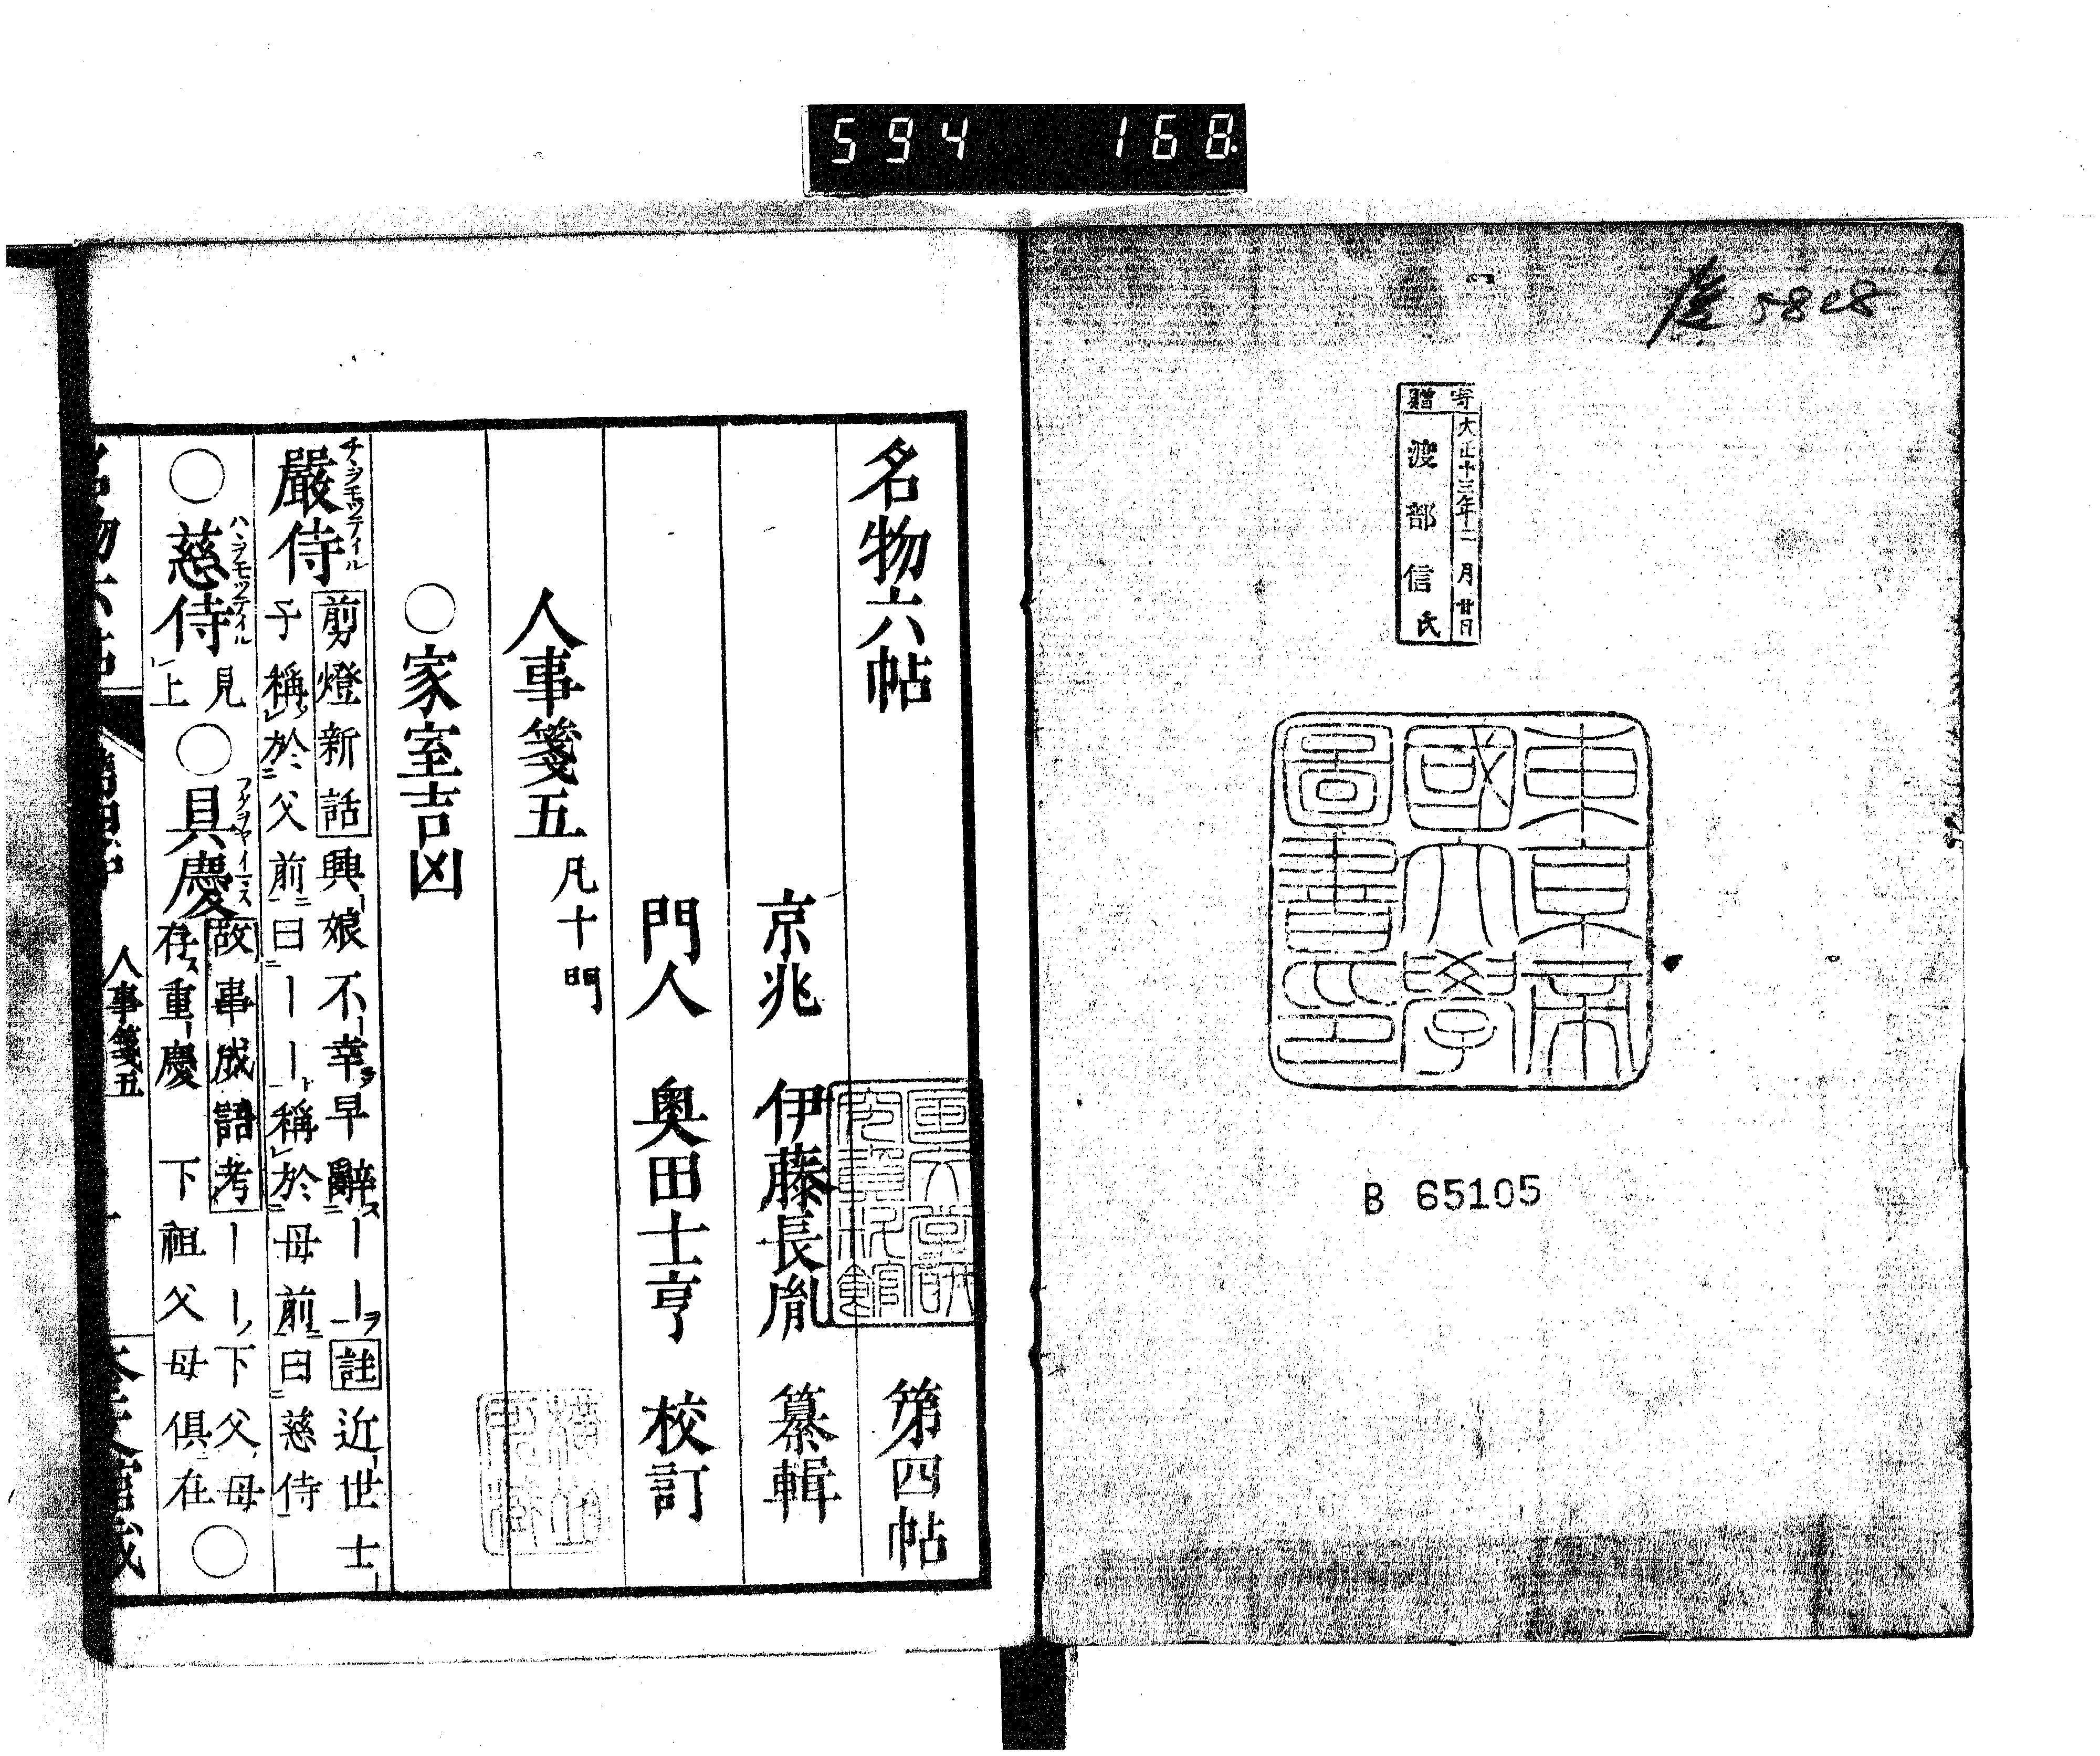 594 168
5828
寄贈
大正十三年二月廿日
渡部信氏
東京帝國大學圖書印
B 65105
名物六帖 第四帖
京兆 伊藤長胤 纂輯
門人 奥田士亨 校訂
人事箋五 凡十門
○家室吉凶
嚴侍 チヽヲモツテイル
剪燈新話 興娘不幸早辭ス二ーー一ヲ 註 近世士
子稱シ於二父前一ニ曰二ーー一ト稱シ於二母前一ニ曰二慈侍一
○慈侍 ハヽヲモツテイル 見上
○具慶 フタヲヤイマス
故事成語考 ーーノ下父母
存ス重慶 下祖父母俱在○
人事箋五